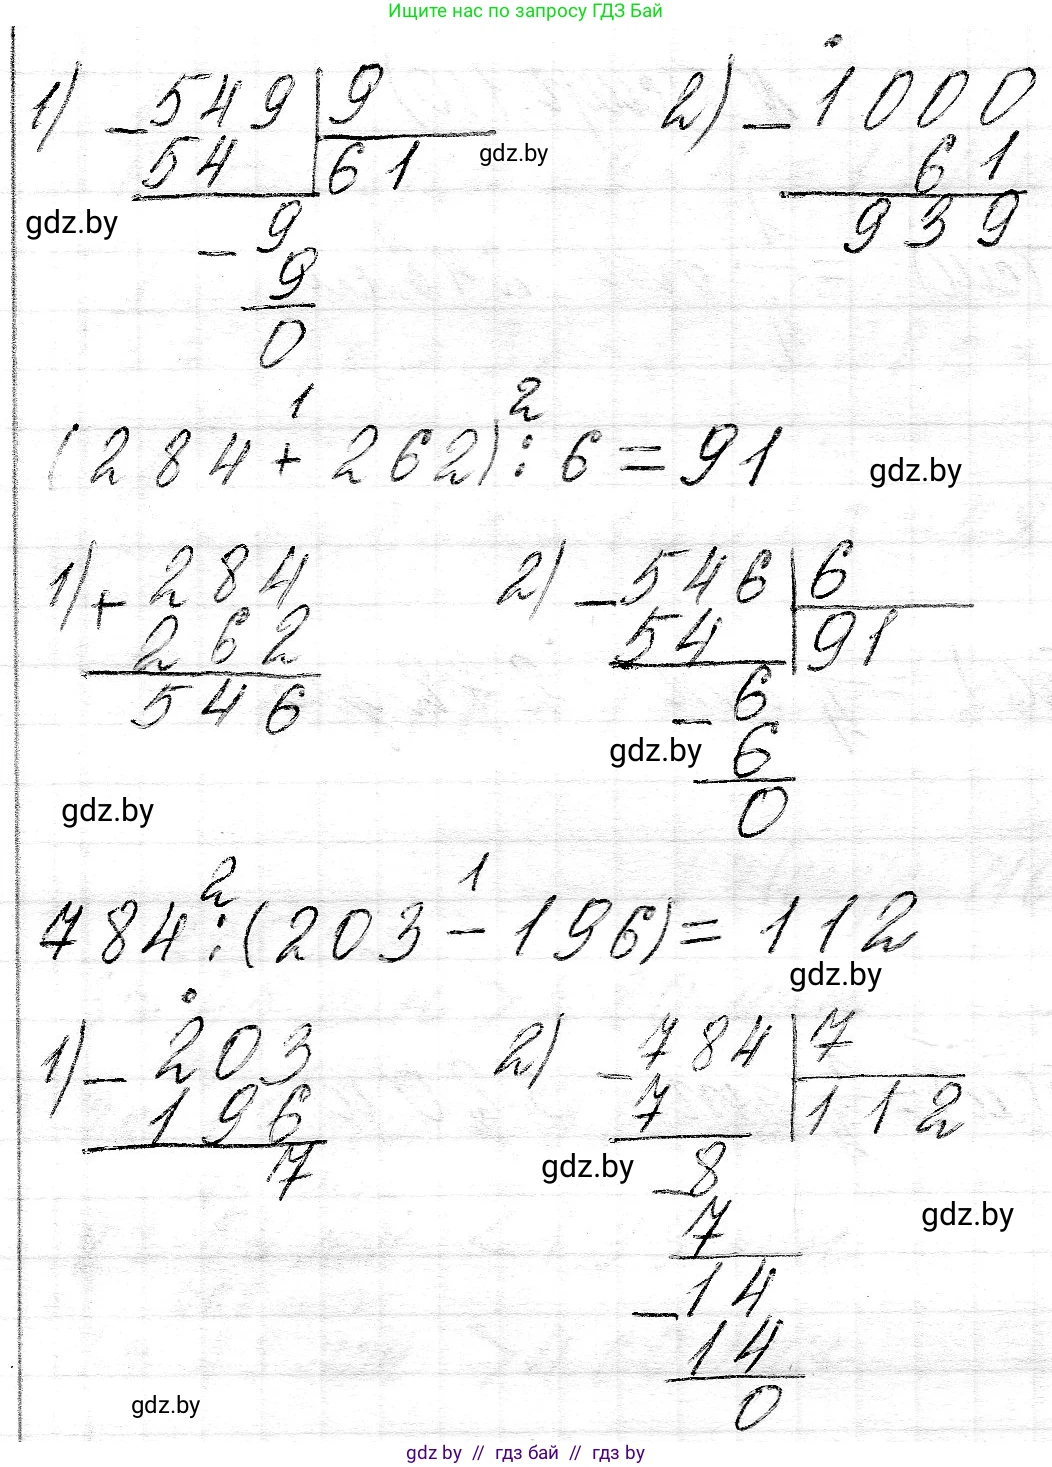 Ищите нас по запросу ГДЗ Бай
1) - 549 | 9
54 | 61
gdz.by
- 9
9
0
2) - 1000
61
939
gdz.by
1 2
(284 + 262) : 6 = 91
gdz.by
1) + 284
262
546
2) - 546 | 6
54 | 91
- 6
gdz.by
6
0
gdz.by
2 1
784 : (203 - 196) = 112
gdz.by
1) - 203
196
7
2) - 784 | 7
7 | 112
gdz.by
- 8
7
gdz.by
- 14
14
0
gdz.by
gdz by // гдз бай // gdz by